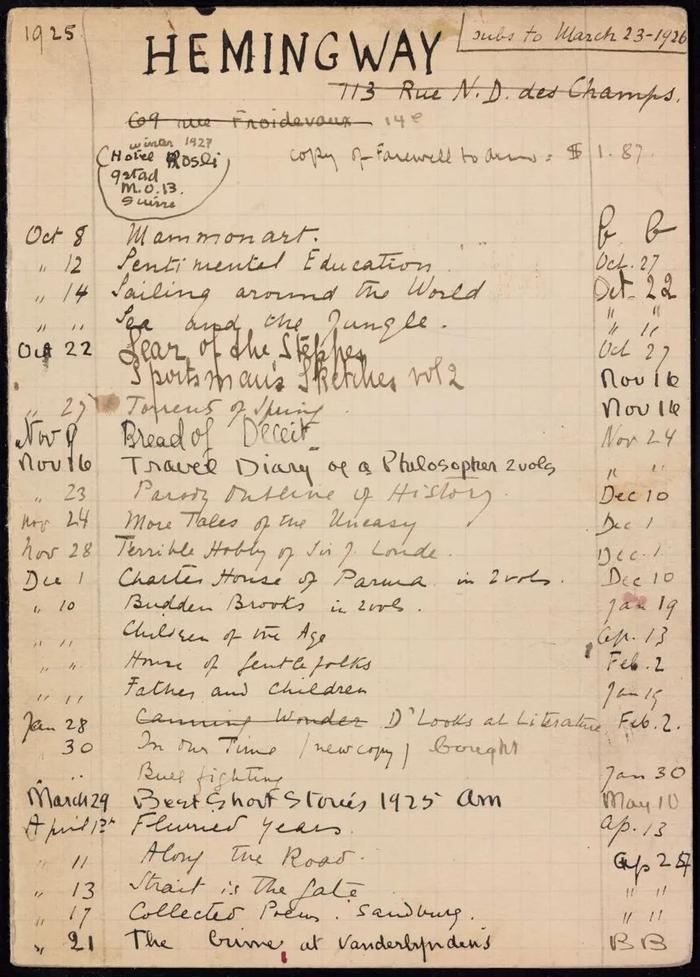 1925 HEMINGWAY subs to March 23-1926
113 Rue N. D. des Champs.
69 rue Froidevaux 14e
winter 1927
Hotel Rosli
gstad
M.O.B.
Suisse
copy of Farewell to arms = $1.87.
Oct 8 Mammonart. B B
" 12 Sentimental Education Oct. 27
" 14 Sailing around the World Oct. 22
" " Sea and the Jungle. " "
Oct 22 Lear of the Steppes Oct 27
Sportsman's Sketches vol 2 Nov 16
" 27 Torrents of Spring Nov 16
Nov 8 Bread of Deceit Nov 24
Nov 16 Travel Diary of a Philosopher 2 vols " "
" 23 Parody Outline of History Dec 10
Nov 24 More Tales of the Uneasy Dec 1
Nov 28 Terrible Hobby of Sir J. Londe. Dec. 1
Dec 1 Charter House of Parma in 2 vols. Dec 10
" 10 Budden Brooks in 2 vols. Jan 19
" " Children of the Age Ap. 13
" " House of Gentlefolks Feb. 2
" " Father and Children Jan 19
Jan 28 Canning Wonder D' Looks at Literature Feb. 2.
30 In our Time (new copy) bought
" Bull fighting Jan 30
March 29 Best Short Stories 1925 Am May 10
April 13th Flurried years. Ap. 13
" 11 Along the Road. Ap 27
" 13 Strait is the Gate " "
" 17 Collected Poems. Sandburg. " "
" 21 The Crime at Vanderlynden's B B